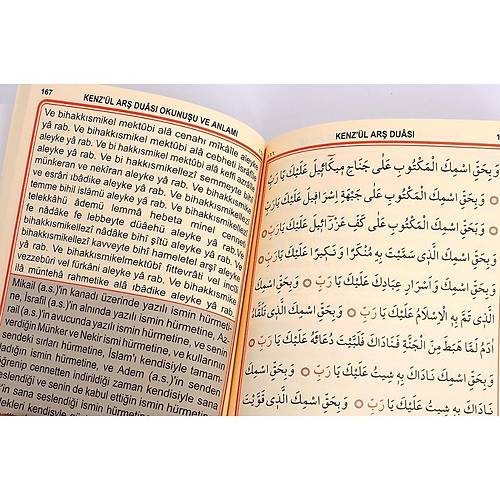 167
KENZ'ÜL ARŞ DUÂSI OKUNUŞU VE ANLAMI
Ve bihakkısmikel mektûbi alâ cenahı mîkâîle aleyke
yâ rab. Ve bihakkısmikel mektûbi alâ cebheti isrâfîle
aleyke yâ rab. Ve bi hakkısmikel mektûbi alâ kefi azrâîle
aleyke yâ rab. Ve bihakkısmikellezî semmeyte bihi
münkeran ve nekîran aleyke yâ rab. Ve bihakkısmike
ve esrâri ıbâdike aleyke yâ rab. Ve bihakkısmikellezî
temme bihil islâmü aleyke yâ rab. Ve bihakkısmikellezî
telekkâhü âdemü lemmâ hebeta minel cenneti
fe nâdâke fe lebbeyte düâehü aleyke yâ rab. Ve
bihakkısmikellezî nâdâke bihî şîtü aleyke yâ rab. Ve
bihakkısmikellezî kavveyte bihî hameletel arşi aleyke
yâ rab. Ve bihakkısmikelmektûbi fittevrâti vel incîli
vezzebûri vel fürkâni aleyke yâ rab. Ve bihakkısmike
ilâ müntehâ rahmetike alâ ıbâdike aleyke yâ rab.
Mikail (a.s.)'in kanadı üzerinde yazılı ismin hürmeti-
ne, İsrafil (a.s.)'in alnında yazılı ismin hürmetine, Az-
rail (a.s.)'in avucunda yazılı ismin hürmetine, ve senin
verdiğin Münker ve Nekir ismi hürmetine, ve kullarının
ndeki sırlar hürmetine, İslam'ı kendisiyle tamam-
ladığın ismin hürmetine, ve Adem (a.s.)'in senden
öğrenip cennetten indirildiği zaman kendisiyle sana
seslendiği ve senin de kabul ettiğin ismin hürmetine,
in sana seslendiği ismin hürmetine,
KENZ'ÜL ARŞ DUÂSI
وَبِحَقِّ اسْمِكَ الْمَكْتُوبِ عَلٰى جَنَاحِ مِيكَائِيلَ عَلَيْكَ يَا رَبِّ
وَبِحَقِّ اسْمِكَ الْمَكْتُوبِ عَلٰى جَبْهَةِ اِسْرَافِيلَ عَلَيْكَ يَا رَبِّ
وَبِحَقِّ اسْمِكَ الْمَكْتُوبِ عَلٰى كَفِّ عَزْرَائِيلَ عَلَيْكَ يَا رَبِّ
وَبِحَقِّ اسْمِكَ الَّذِى سَمَّيْتَ بِهِ مُنْكَرًا وَنَكِيرًا عَلَيْكَ يَا رَبِّ
وَبِحَقِّ اسْمِكَ وَاَسْرَارِ عِبَادِكَ عَلَيْكَ يَا رَبِّ وَبِحَقِّ اسْمِكَ
الَّذِى تَمَّ بِهِ الْاِسْلَامُ عَلَيْكَ يَا رَبِّ وَبِحَقِّ اسْمِكَ الَّذِى تَلَقَّاهُ
اٰدَمُ لَمَّا هَبَطَ مِنَ الْجَنَّةِ فَنَادَاكَ فَلَبَّيْتَ دُعَائَهُ عَلَيْكَ يَا رَبِّ
وَبِحَقِّ اسْمِكَ الَّذِى نَادَاكَ بِهِ شِيثُ عَلَيْكَ يَا رَبِّ وَبِحَقِّ اسْمِكَ الَّذِى قَوَّيْتَ